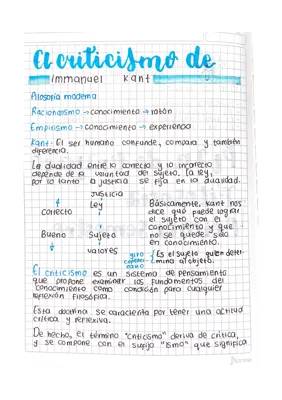 El criticismo de
immanuel kant
Filosofía moderna
Racionalismo → conocimiento → razón
Empirismo → conocimiento → experiencia
Kant: El ser humano confunde, compara y también
diferencia.
La dualidad entre lo correcto y lo incorrecto
depende de la voluntad del sujeto, la ley,
por lo tanto la justicia se fija en la dualidad.
Justicia
Ley
correcto
Bueno
Sujeto
valores
Básicamente, Kant nos
dice que puede lograr
el sujeto con el
conocimiento y que
no se quede solo
en conocimiento.
giro
copernicano
Es el sujeto quien deter-
mina al objeto.
El criticismo es un sistema de pensamiento
que propone examinar los fundamentos del
conocimiento como condición para cualquier
reflexión filosófica.
Esta doctrina se caracteriza por tener una actitud
crítica y reflexiva.
De hecho, el término "criticismo" deriva de crítica,
y se compone con el sufijo "ismo" que significa